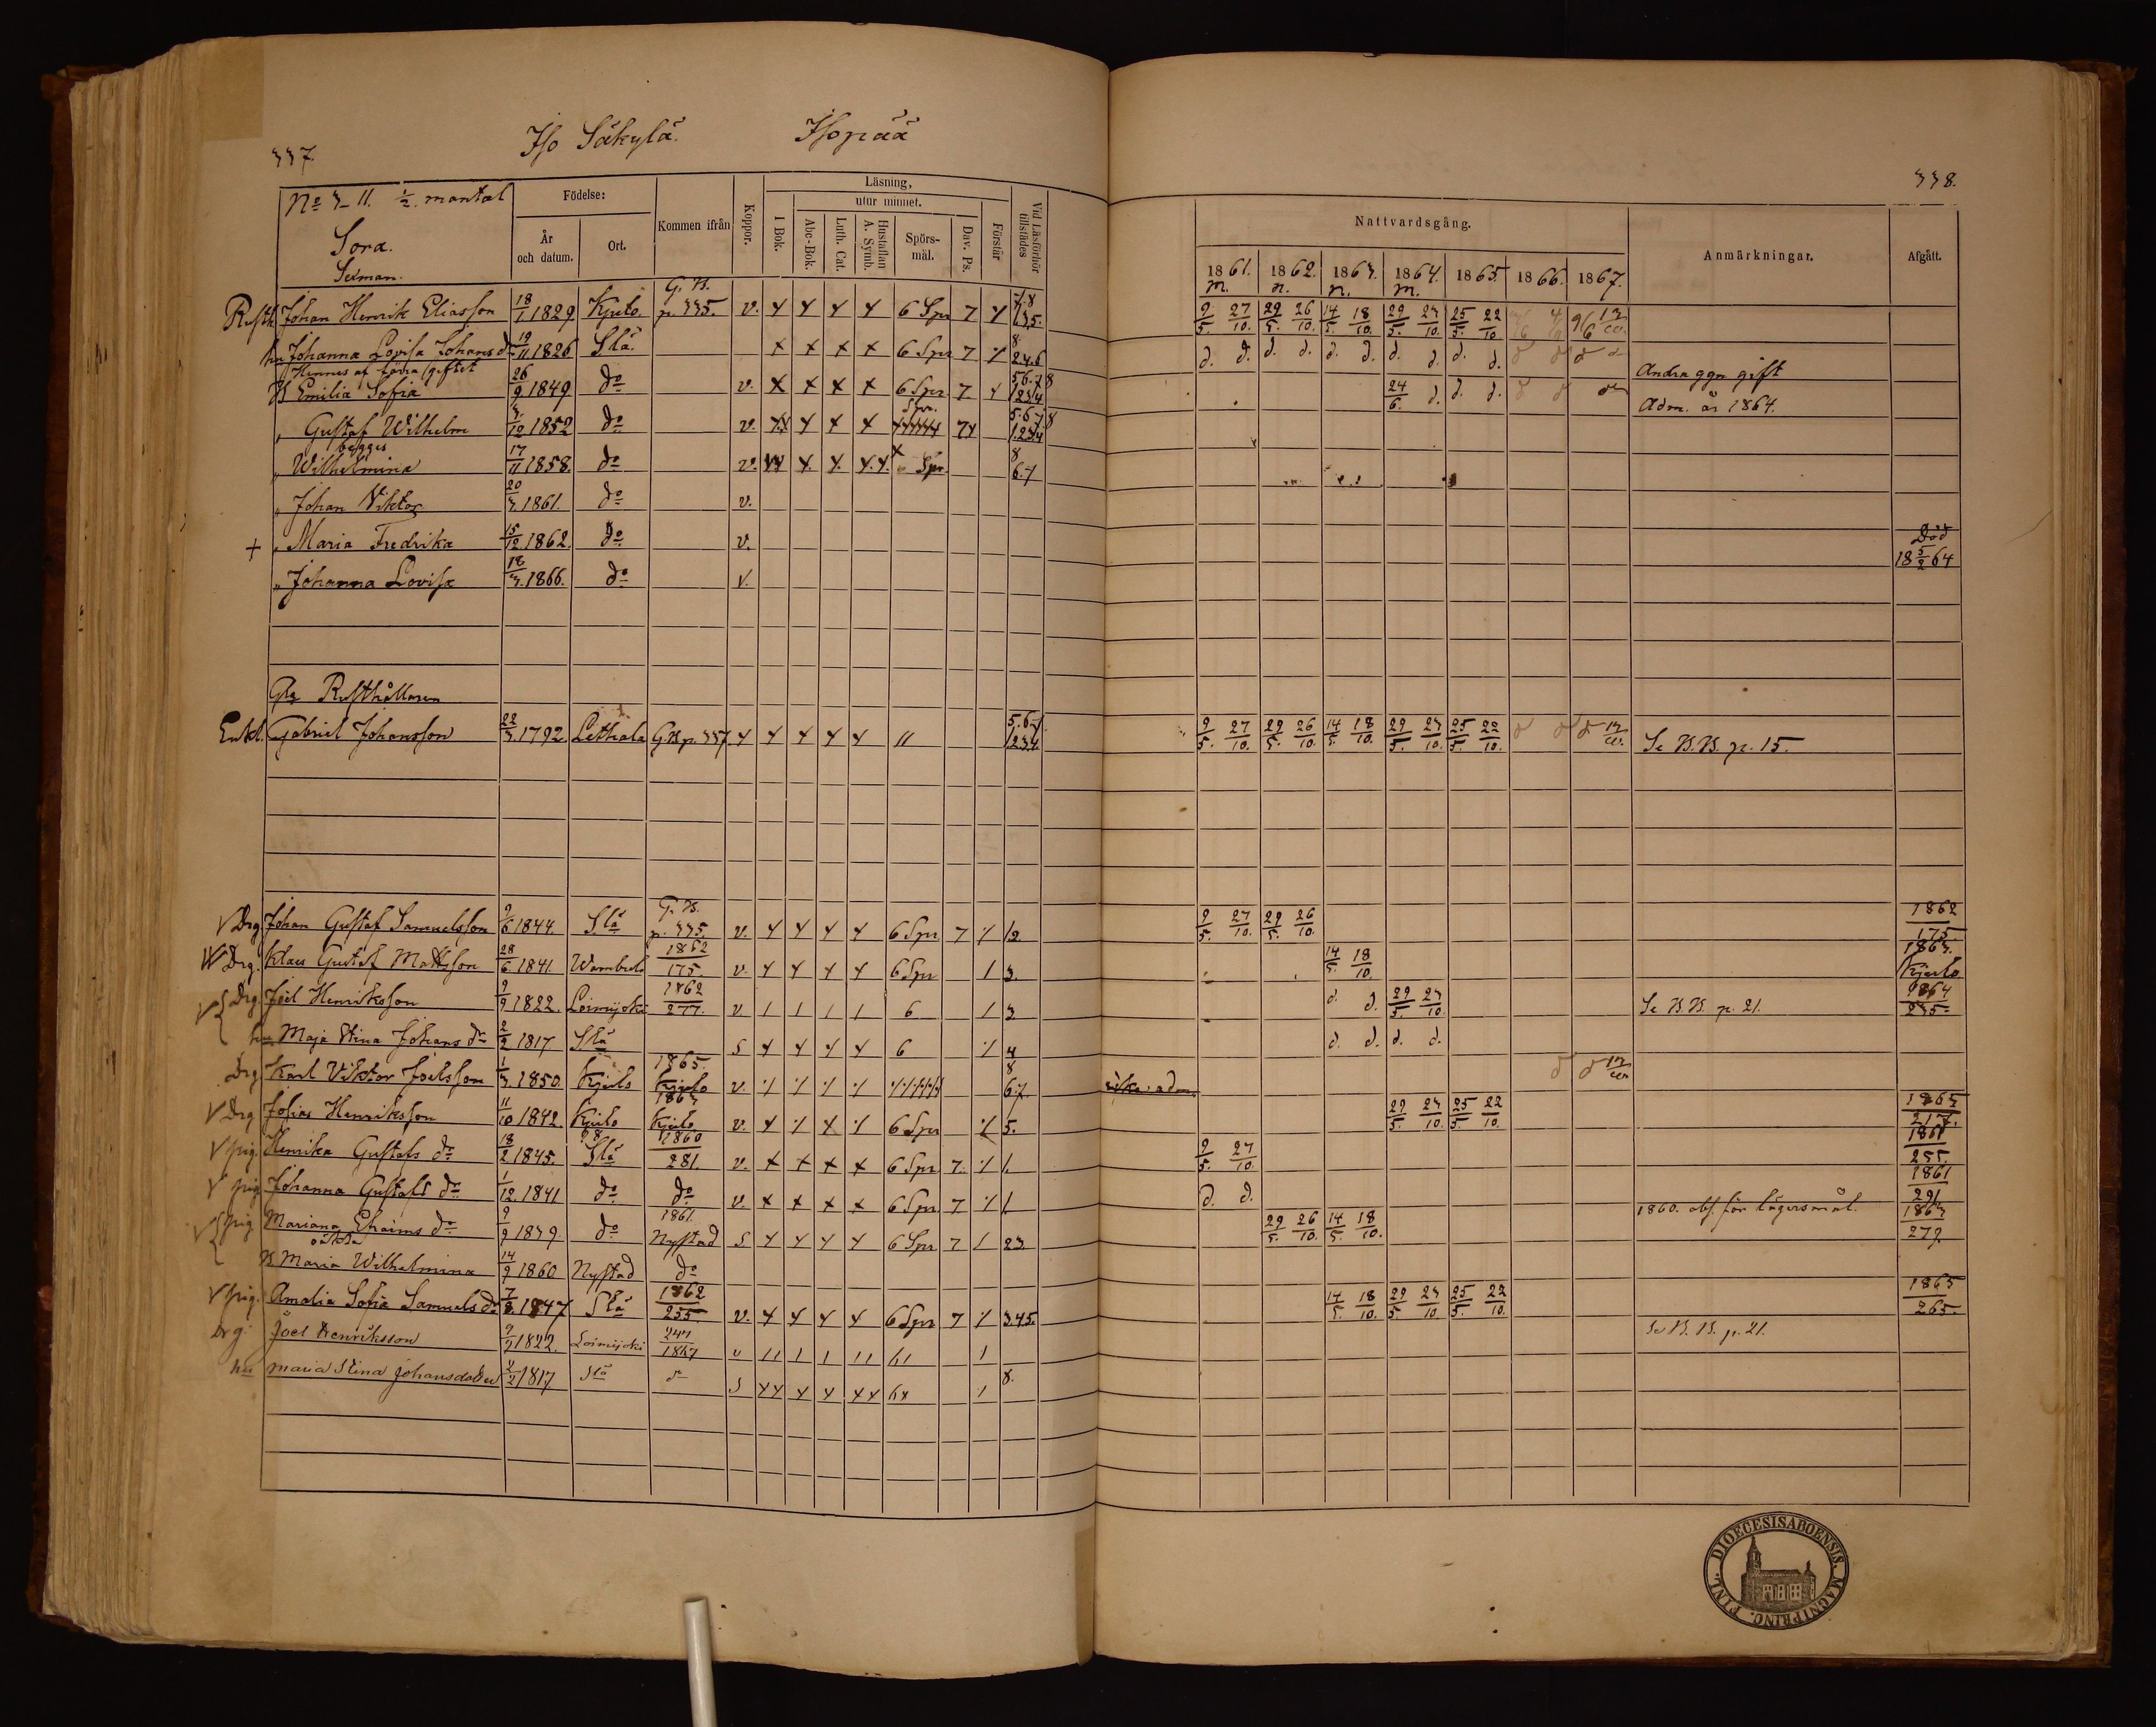 337.
Iso Säkylä. Isopää
No 3-11. ½ mantal
Sora.
Sexman.
Födelse:
År och datum.
Ort.
Kommen ifrån
Koppor.
Läsning,
utur minnet.
I Bok.
Abc-Bok.
Luth. Cat.
Hustaflan A. Symb.
Spörs-mål.
Dav. Ps.
Förstår
Vid Läsförhör tillstädes
Rusth. Johan Henrik Eliasson 18/1 1829 Kjulo G. B. p. 335. v. 6 Spr 7
hu Johanna Lovisa Johans dr 19/11 1826 Slä. 6 Spr 7
Hennes af förra giftet
B Emilia Sofia 26/9 1849 do v. 6 Spr 7
" Gustaf Wilhelm 3/12 1852 do v. Spr.
begges
" Wilhelmina 17/11 1858. do v. Spr
" Johan Viktor 20/3 1861. do v.
+ " Maria Fredrika 15/12 1862. do v.
" Johanna Lovisa 18/3. 1866. do v.
Gla Rusthållaren
Enkl. Gabriel Johansson 22/3. 1792. Lethala G. B p. 337.
V Drg Johan Gustaf Samuelsson 9/6 1844. Slä G. B. p. 335. v. 6 Spr 7
Drg. Klaes Gustaf Mattsson 28/6 1841. 1862/175. v. 6 Spr 3.
Drg. Joel Henriksson 9/9 1822. Loimijoki 1862/277. v 6 3
hu. Maja Stina Johans dr 2/2 1817 Slä S 6 4
Drg Karl Viktor Joelsson 1/3 1850. Kjulo 1865. Kjulo v. 67.
V Drg Josias Henriksson 11/10 1842. Kjulo 1863 Kjulo v. 6 Spr 5.
V pig. Henrika Gustafs dr 18/2 1845. Slä 1860/281. v. 6 Spr 7. 1.
V pig Johanna Gustafs dr 1/12 1841 do do v. 6 Spr 7 1
pig Mariana Efraims dr 9/9 1839. do 1861. Nystad S 6 Spr 7 23.
oäkta
B Maria Wilhelmina 14/9 1860 Nystad do
V pig. Amalia Sofia Samuels dr 7/8. 1847 Slä 1862/255. v. 6 Spr 7 345.
Drg. Joel Henriksson 9/9 1822. Loimijoki 247/1867 v
hu Maria Stina Johansdotter 2/2 1817 Slä d S 8.
338.
Nattvardsgång.
Anmärkningar.
Afgått.
1861. 1862. 1863. 1864. 1865. 1866. 1867.
m. n. n. m.
9/5. 27/10. 29/5. 26/10. 14/5. 18/10. 29/5. 23/10. 25/5. 22/10.
d. d. d. d. d. d. d. d. d. d. Andra ggn gift
24/6. d. d. d. Adm. år 1864.
Död 18 5/2 64
9/5. 27/10. 29/5. 26/10. 14/5. 18/10. 29/5. 23/10. 25/5. 22/10. Se B.B. p. 15.
9/5. 27/10. 29/5. 26/10. 1862/175
14/5. 18/10. 1863. Kjulo
d. d. 29/5. 23/10. Se B.B. p. 21. 1864/235.
d. d. d. d.
29/5. 23/10. 25/5. 22/10. 1865/217.
9/5. 27/10. 1861/255.
d. d. 1861/291
29/5. 26/10. 14/5. 18/10. 1860. abs. för lägersmål. 1863/279.
14/5. 18/10. 29/5. 23/10. 25/5. 22/10. 1865/265.
Se B. B. p. 21.
DIOECESIS ABOENSIS. MAGNI PRINC. FINL.